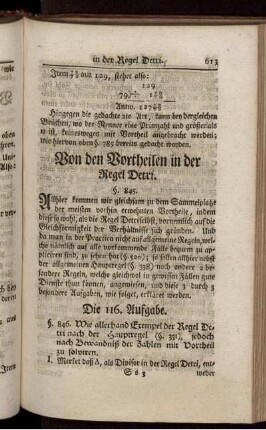 in der Regel Detri. 613
aus 129, stehet also:
129
Antw.
Hingegen die gedachte 2te Art, kann bey dergleichen
Brüchen, wo der Nenner eine Primzahl und größer als
12 ist, keineswegen mit Vortheil angebracht werden;
wie hiervon oben §. 785 bereits gedacht worden.
Von den Vortheilen in der
Regel Detri.
§. 845.
Allhier kommen wir gleichsam zu dem Sammelplatz
der meisten vorhin erwehnten Vortheile, indem
diese so wohl, als die Regel Detri selbst, vornemlich auf die
Gleichförmigkeit der Verhältnissen sich gründen. Und da
man in der Practica nicht auf allgemeine Regeln, welche
nämlich auf alle vorkommende Fälle bequem zu applici-
ren sind, zu sehen hat; so sollen allhier nebst
der allgemeinen Hauptregel (§. 338) noch andere be-
sondere Regeln, welche gleichwol in gewissen Fällen gute
Dienste thun können, angewiesen, und diese durch 3
besondere Aufgaben, wie folget, erkläret werden.
Die 116. Aufgabe.
§. 846. Wie allerhand Exempel der Regel De-
tri nach der Hauptregel (§. 331), jedoch
nach Bewandniß der Zahlen mit Vortheil
zu solviren.
I. Merket daß A, als Divisor in der Regel Detri, ent-
Ss 3 weder